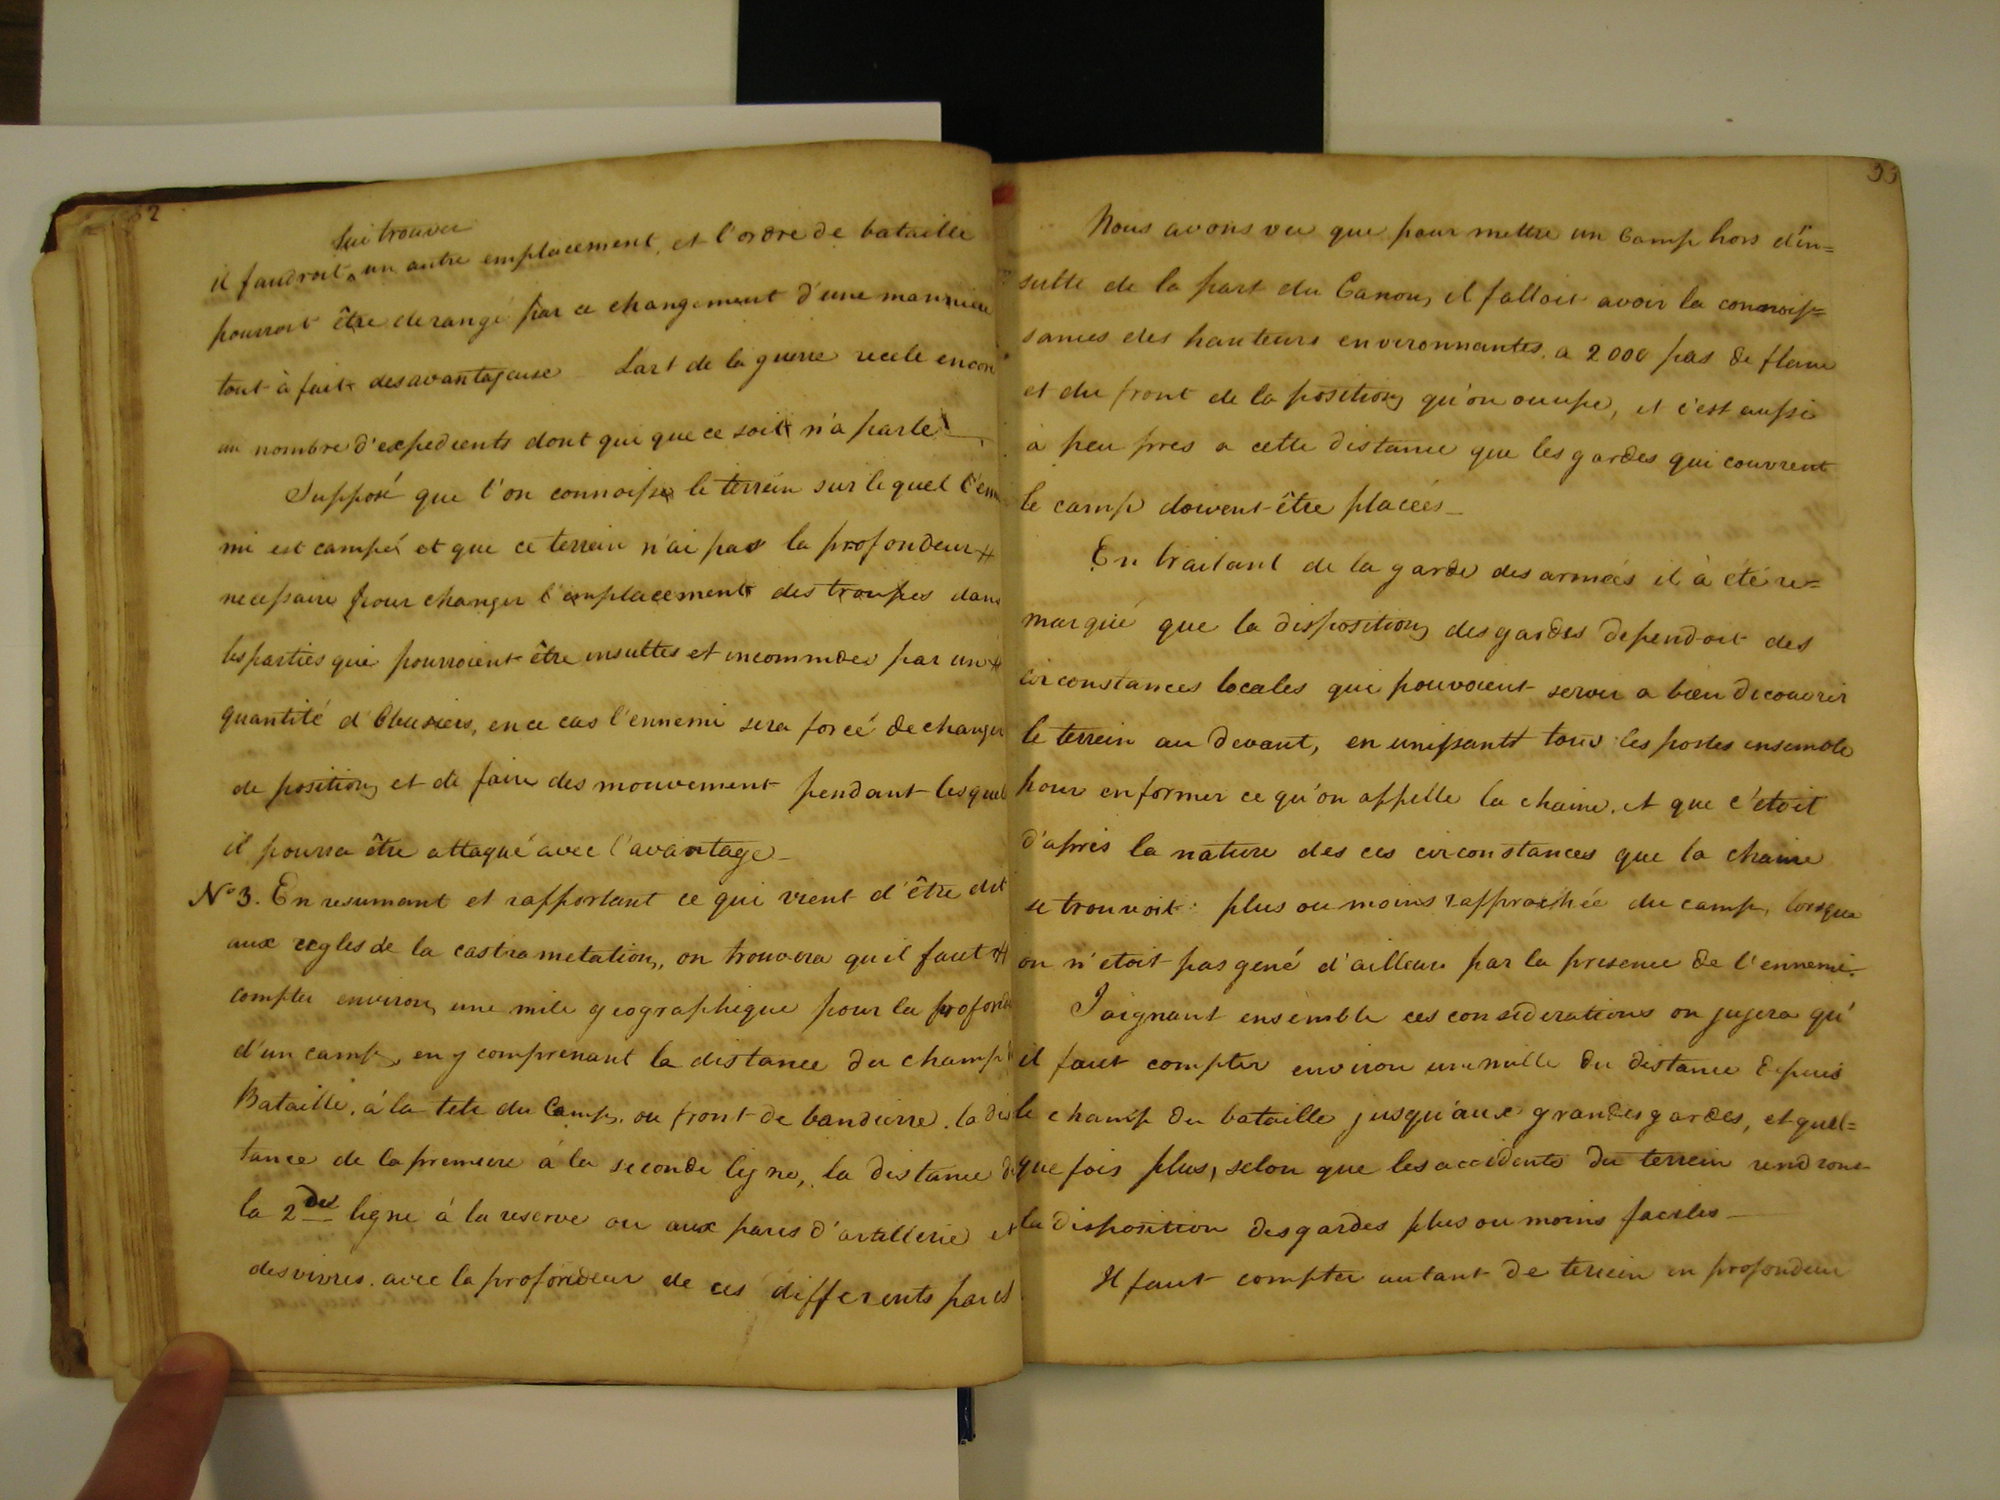 52
lui trouver
il faudroit un autre emplacement, et l'ordre de bataille
pourroit être derangé par ce changement d'une manniere
tout à fait desavantajeuse Lart de la guerre recele encor
un nombre d'expedients dont qui que ce soit n'a parlé
Supposé que l'on connoisse le terrein sur lequel l'enn
mi est campé et que ce terrein n'ai pas la profondeur
necessaire pour changer l'emplacement des troupes dans
les parties qui pourroient être insultés et incommdés par un
quantité d'Obusiers, en ce cas l'ennemi sera forcé de changer
de position, et de faire des mouvement pendant lesquel
il pourra être attaqué avec l'avantage
No 3. En resumant et rapportant ce qui vient d'être dit
aux regles de la castrametation, on trouvera qu'il faut
compter environ une mile geographique pour la profond
d'un camp, en y comprenant la distance du champ
Bataille, à la tete du Camp, ou front de bandierre. la dis
tance de la premiere à la seconde ligne, la distance de
la 2de ligne à la reserve ou aux parcs d'artillerie et
des vivres. avec la profondeur de ces differents parcs
33
Nous avons vu que pour mettre un Camp hors d'in=
sulte de la part du Canon, il falloit avoir la connoiss=
sances des hauteurs environnantes, a 2000 pas de flanc
et du front de la position, qu'on ocupe, et c'est aussi
à peu pres a cette distance que les gardes qui couvrent
le camp doivent être placées
En traitant de la garde des armées il à été re=
marqué que la disposition des gardes dependoit des
circonstances locales qui pouvoient servir a bien decouvrir
le terrein au devant, en unissant tous les postes ensemble
pour en former ce qu'on appelle la chaine. et que c'etoit
d'aprés la nature des ces circonstances que la chaine
se trouvoit plus ou moins rapprochée du camp, lorsque
on n'etoit pas gené d'ailleurs par la presence de l'ennemi.
Joignant ensemble ces considerations on jugera qu'
il faut compter environ un mille du distance depuis
le champ du bataille jusqu'aux grandes gardes, et quel=
que fois plus, selon que les accidents du terrein rendront
la disposition des gardes plus ou moins faciles
Il faut compter autant de terrein en profondeur